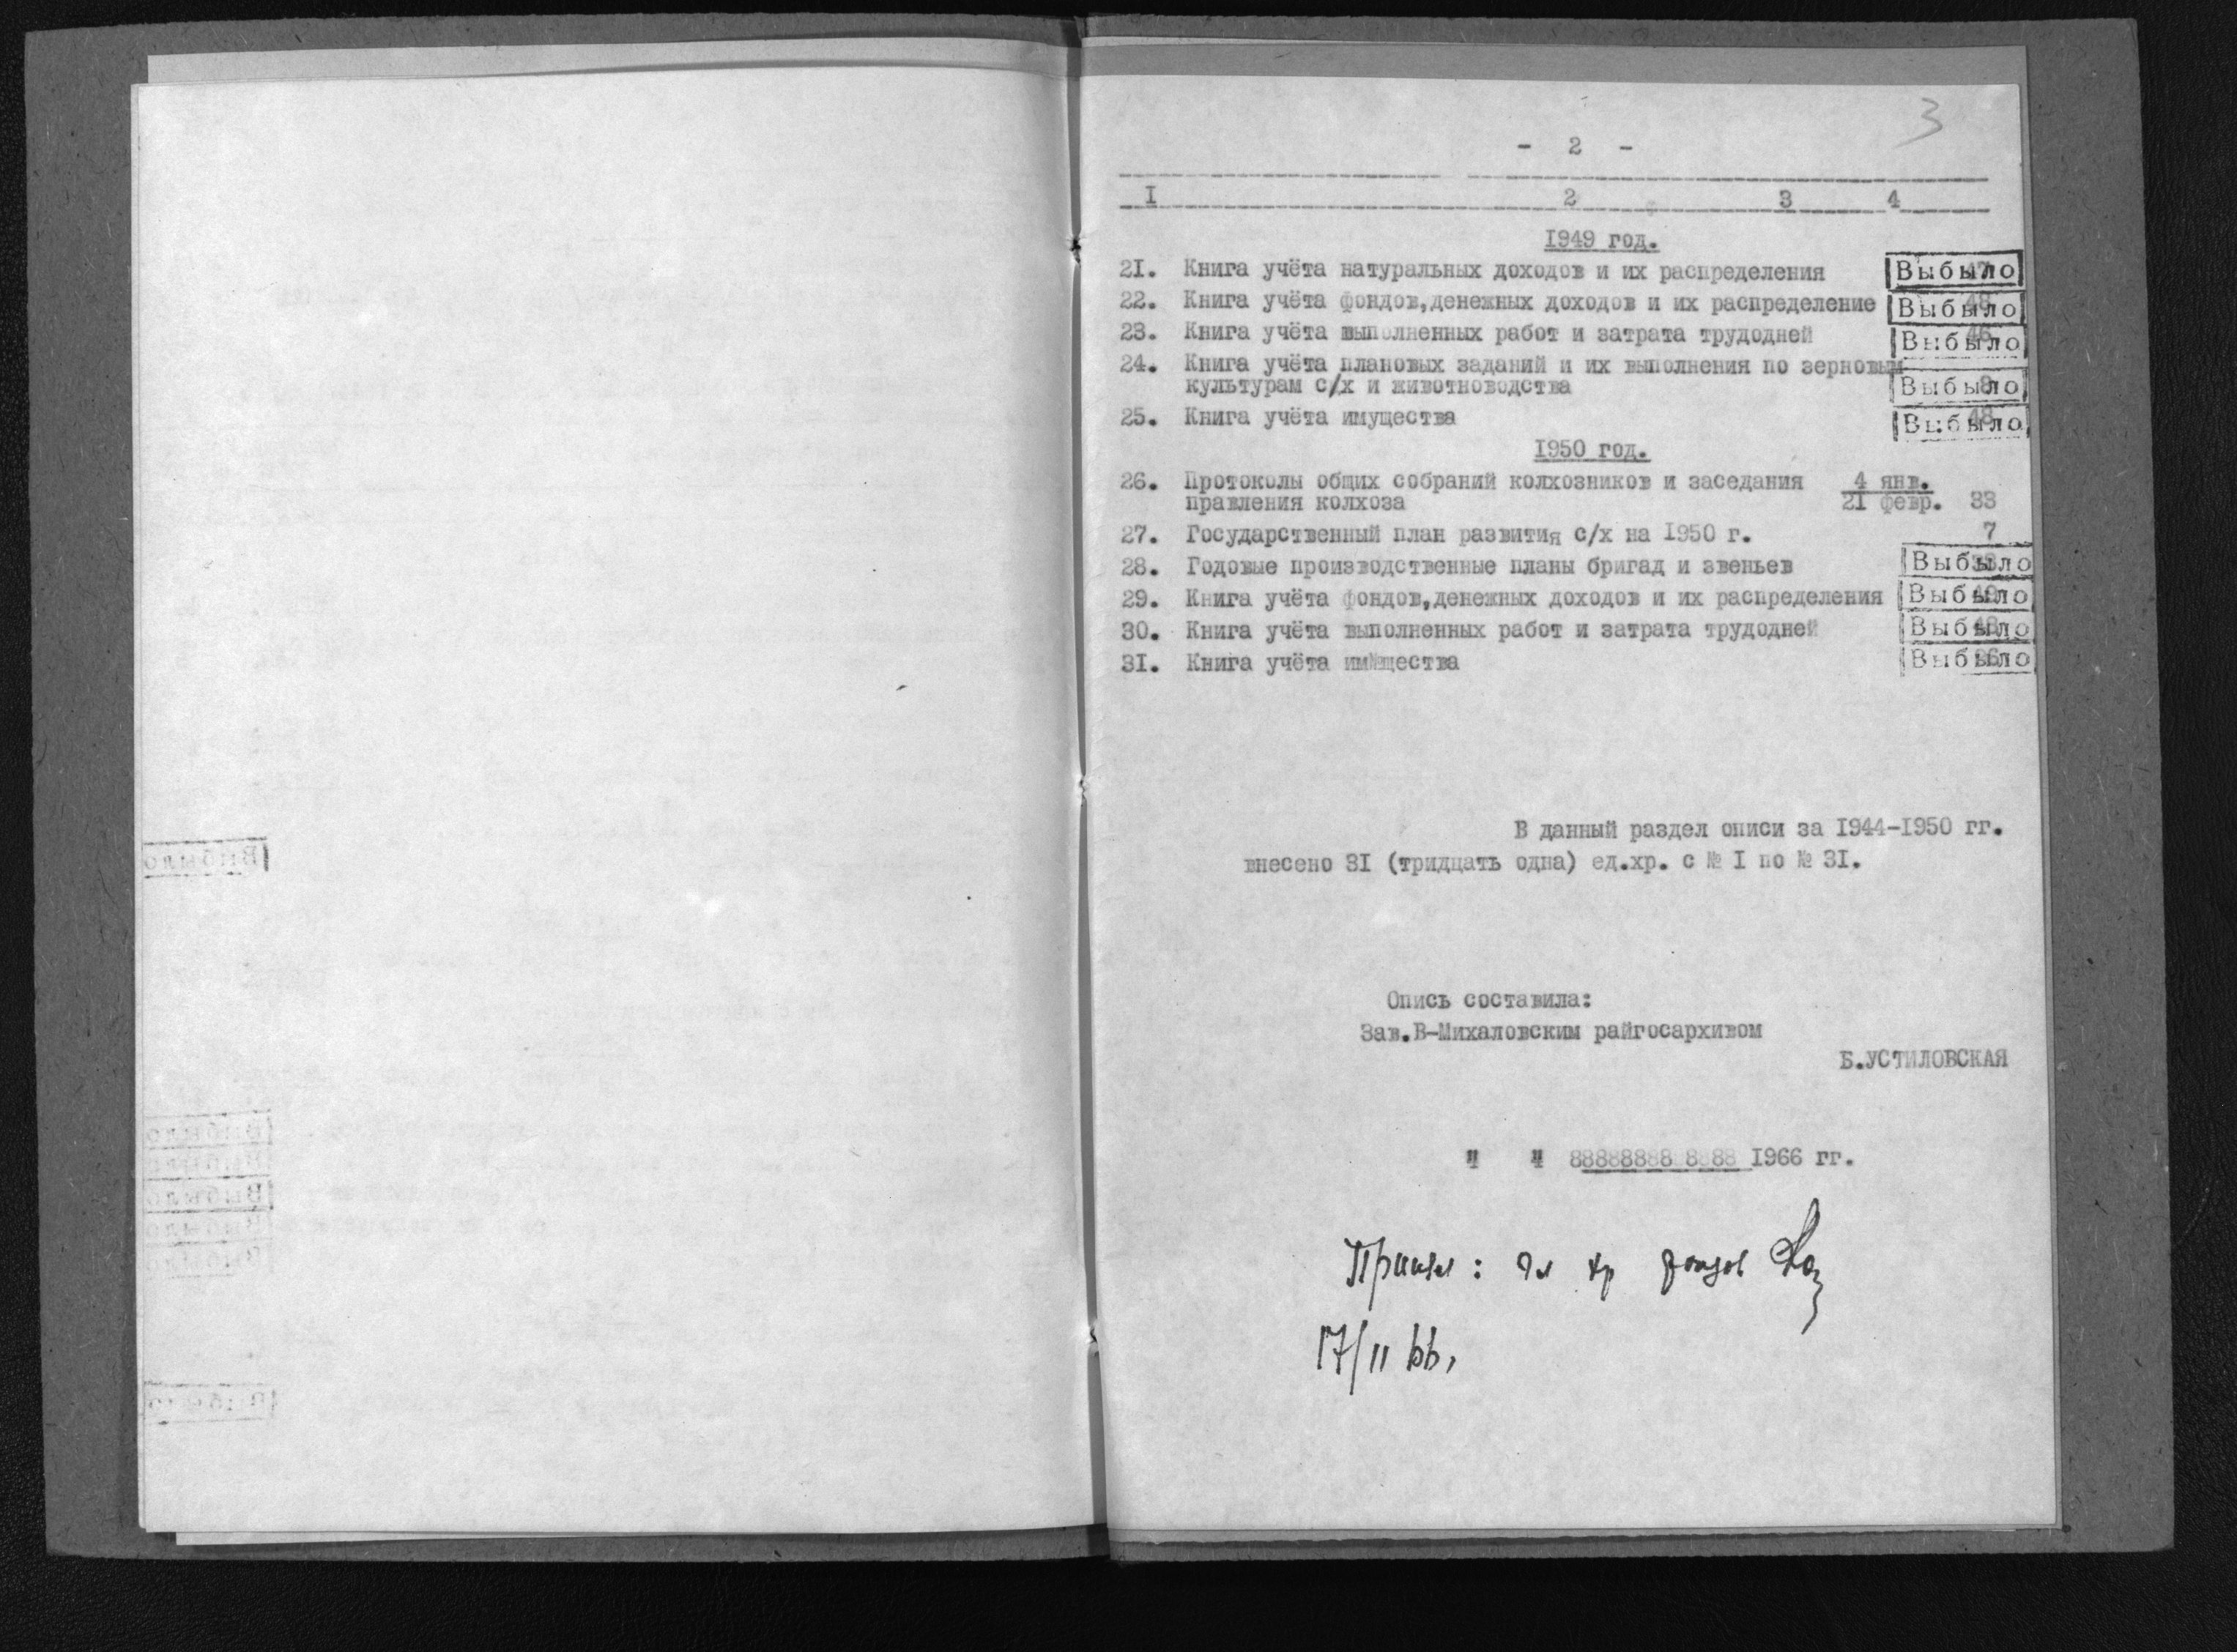 3
- 2 -
I 2 3 4
1949 год.
21. Книга учёта натуральных доходов и их распределения Выбыло
22. Книга учёта фондов,денежных доходов и их распределение Выбыло
23. Книга учёта выполненных работ и затрата трудодней Выбыло
24. Книга учёта плановых заданий и их выполнения по зерновым
культурам с/х и животноводства Выбыло
25. Книга учёта имущества Выбыло
1950 год.
26. Протоколы общих собраний колхозников и заседания 4 янв.
правления колхоза 21 февр. 33
27. Государственный план развития с/х на 1950 г. 7
28. Годовые производственные планы бригад и звеньев Выбыло
29. Книга учёта фондов,денежных доходов и их распределения Выбыло
30. Книга учёта выполненных работ и затрата трудодней Выбыло
31. Книга учёта имущества Выбыло
В данный раздел описи за 1944-1950 гг.
внесено 31 (тридцать одна) ед.хр. с № 1 по № 31.
Опись составила:
Зав.В-Михаловским райгосархивом
Б.УСТИЛОВСКАЯ
1966 гг.
Принял: гл хр фондов
17/II 66,